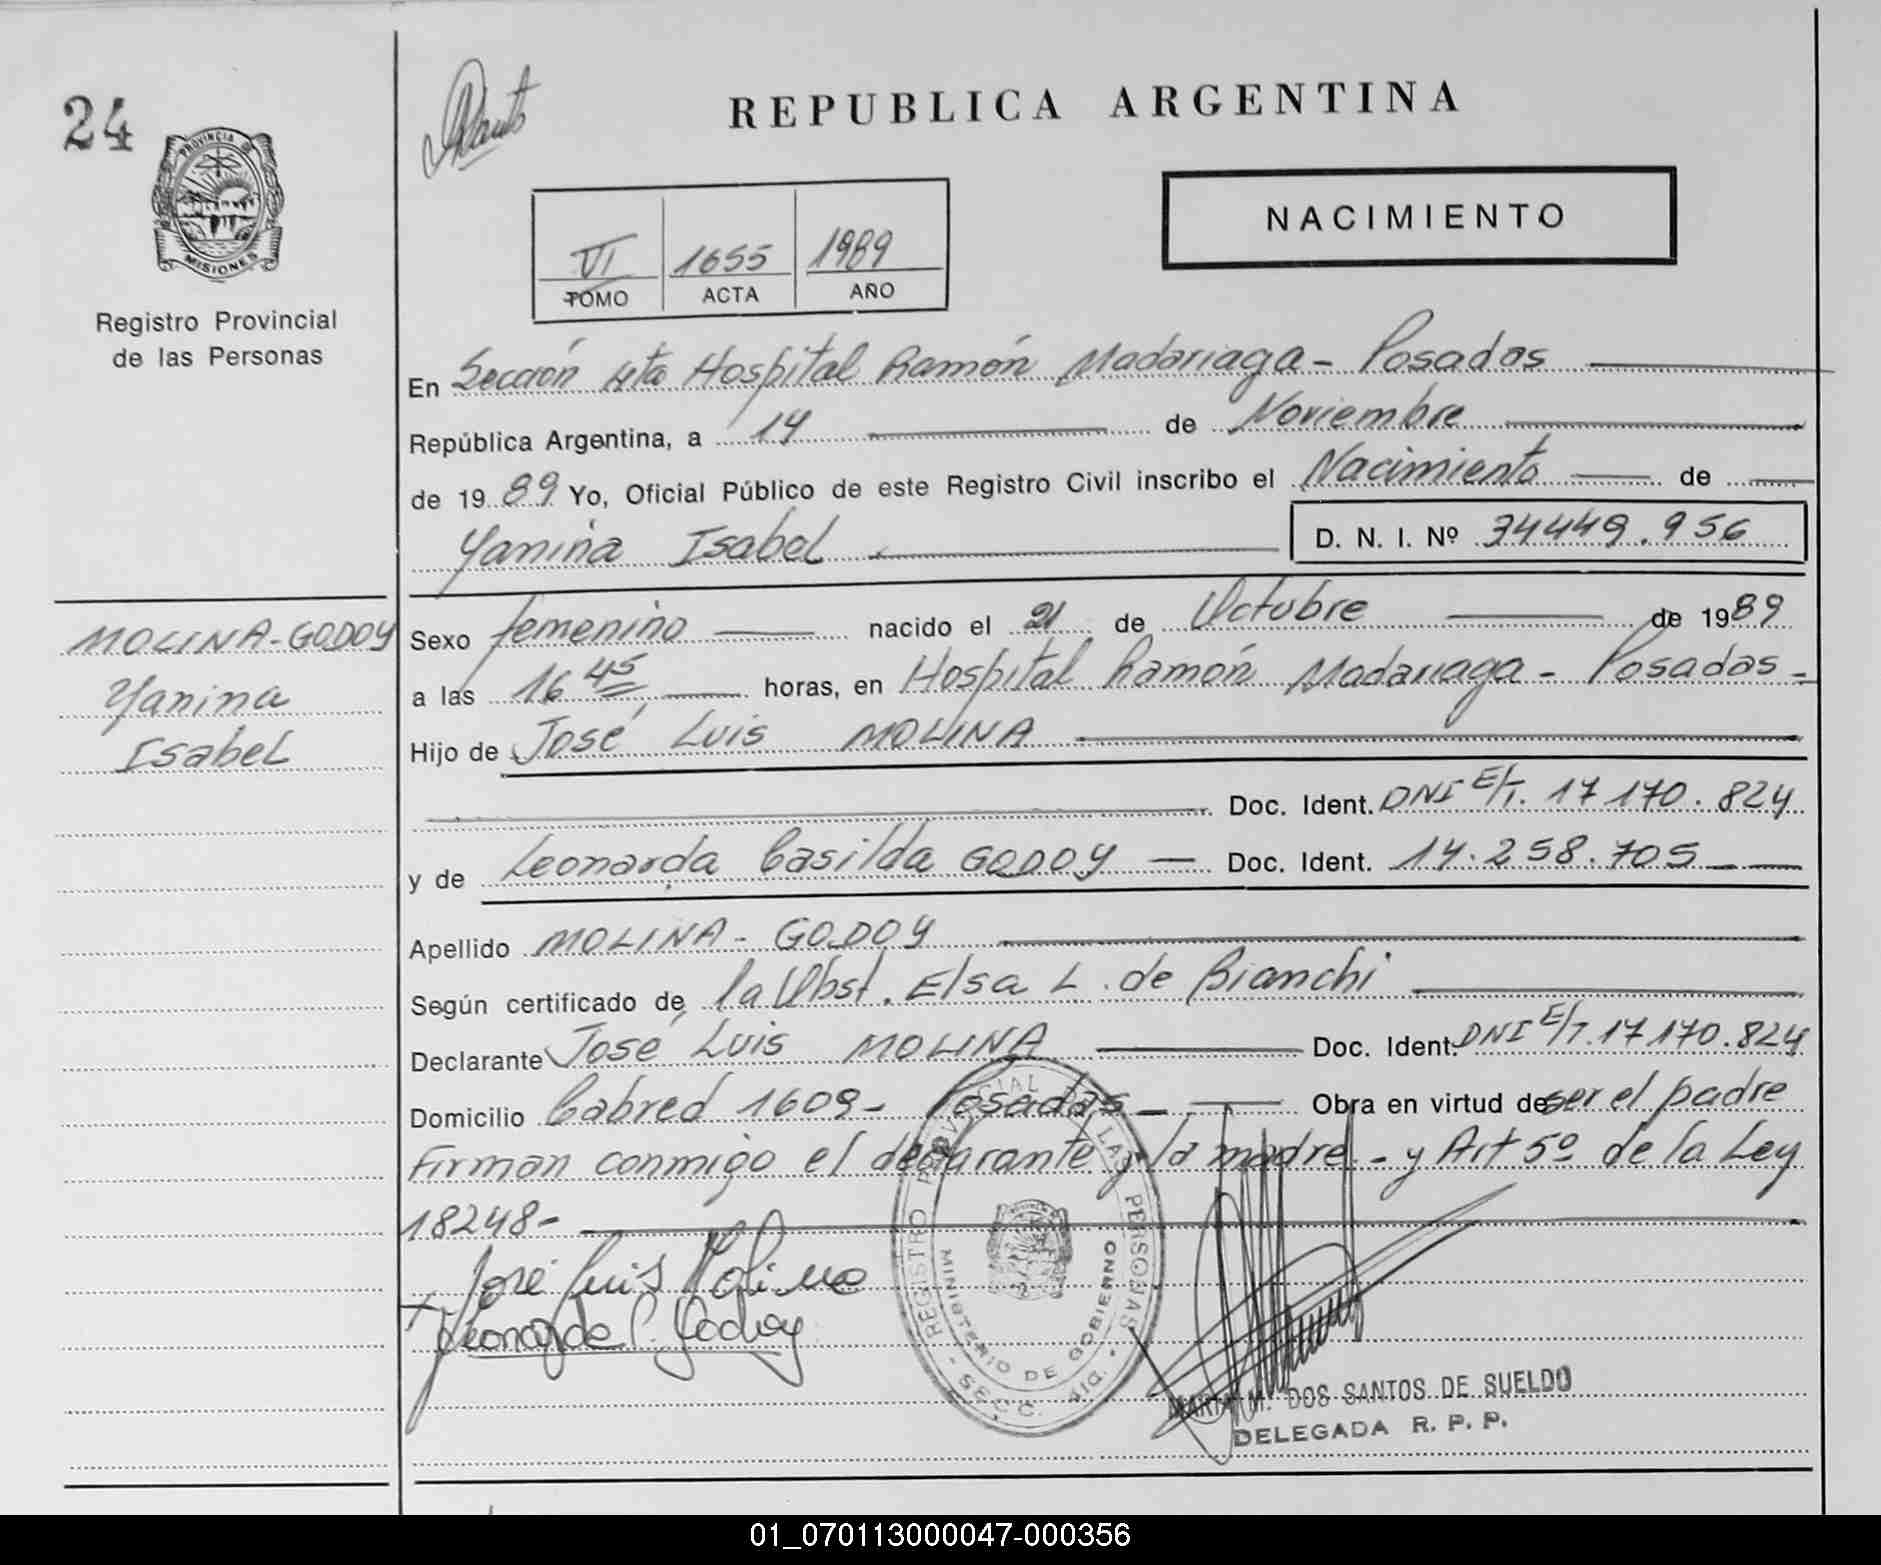 24
PROVINCIA DE
MISIONES
Registro Provincial
de las Personas
MOLINA-GODOY
Yanina
Isabel
REPUBLICA ARGENTINA
NACIMIENTO
VI 1655 1989
TOMO ACTA AÑO
En Sección 4ta Hospital Ramón Madariaga - Posadas
República Argentina, a 14 de Noviembre
de 1989 Yo, Oficial Público de este Registro Civil inscribo el Nacimiento de
Yanina Isabel D. N. I. Nº 34449.956
Sexo femenino nacido el 21 de Octubre de 1989
a las 16 45 horas, en Hospital Ramón Madariaga - Posadas -
Hijo de José Luis MOLINA
Doc. Ident. DNI E/T. 17 170.824
y de Leonarda Casilda GODOY Doc. Ident. 14.258.705
Apellido MOLINA - GODOY
Según certificado de la Obst. Elsa L. de Bianchi
Declarante José Luis MOLINA Doc. Ident. DNI E/T. 17 170.824
Domicilio Cabred 1609 - Posadas Obra en virtud de ser el padre
Firman conmigo el declarante y la madre - y Art 5º de la Ley
18248 -
José Luis Molina
Leonarda C. Godoy
REGISTRO PROVINCIAL DE LAS PERSONAS
MINISTERIO DE GOBIERNO
- SECC. 4ta. -
M. DOS SANTOS DE SUELDO
DELEGADA R. P. P.
01_070113000047-000356